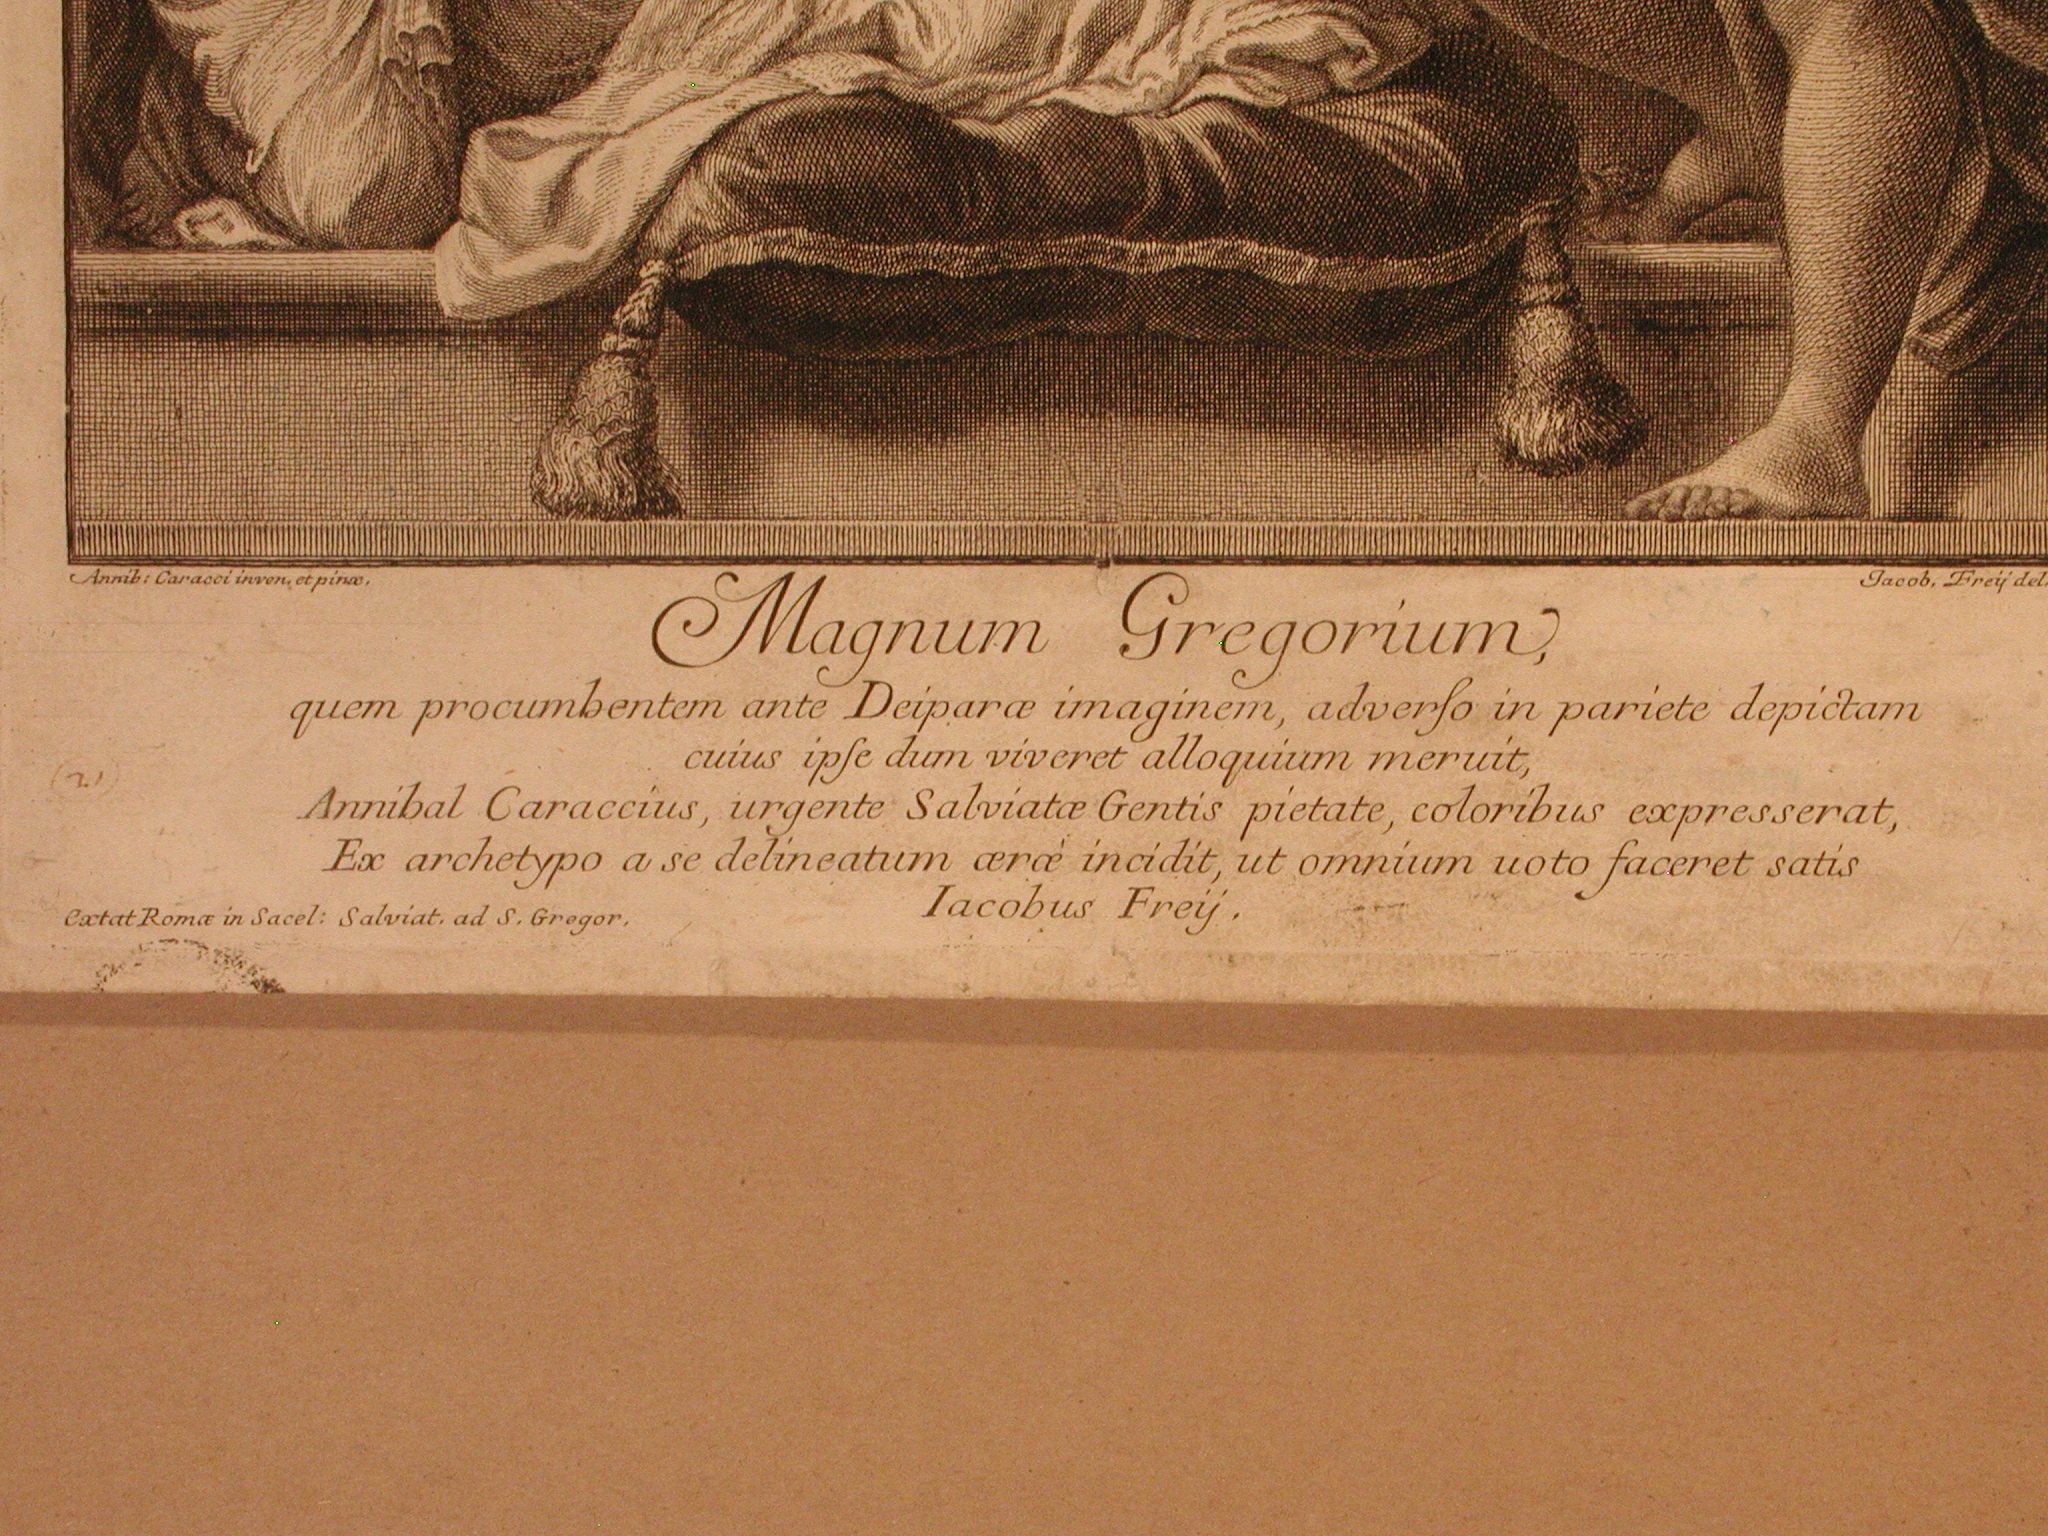 Annib: Caracci inven. et pinx.
Jacob. Freij del.
Magnum Gregorium,
quem procumbentem ante Deiparæ imaginem, adverſo in pariete depictam
cuius ipſe dum viveret alloquium meruit,
Annibal Caraccius, urgente Salviatæ Gentis pietate, coloribus expresserat,
Ex archetypo a se delineatum æræ incidit, ut omnium uoto faceret satis
Iacobus Freij.
extat Romæ in Sacel: Salviat. ad S. Gregor.